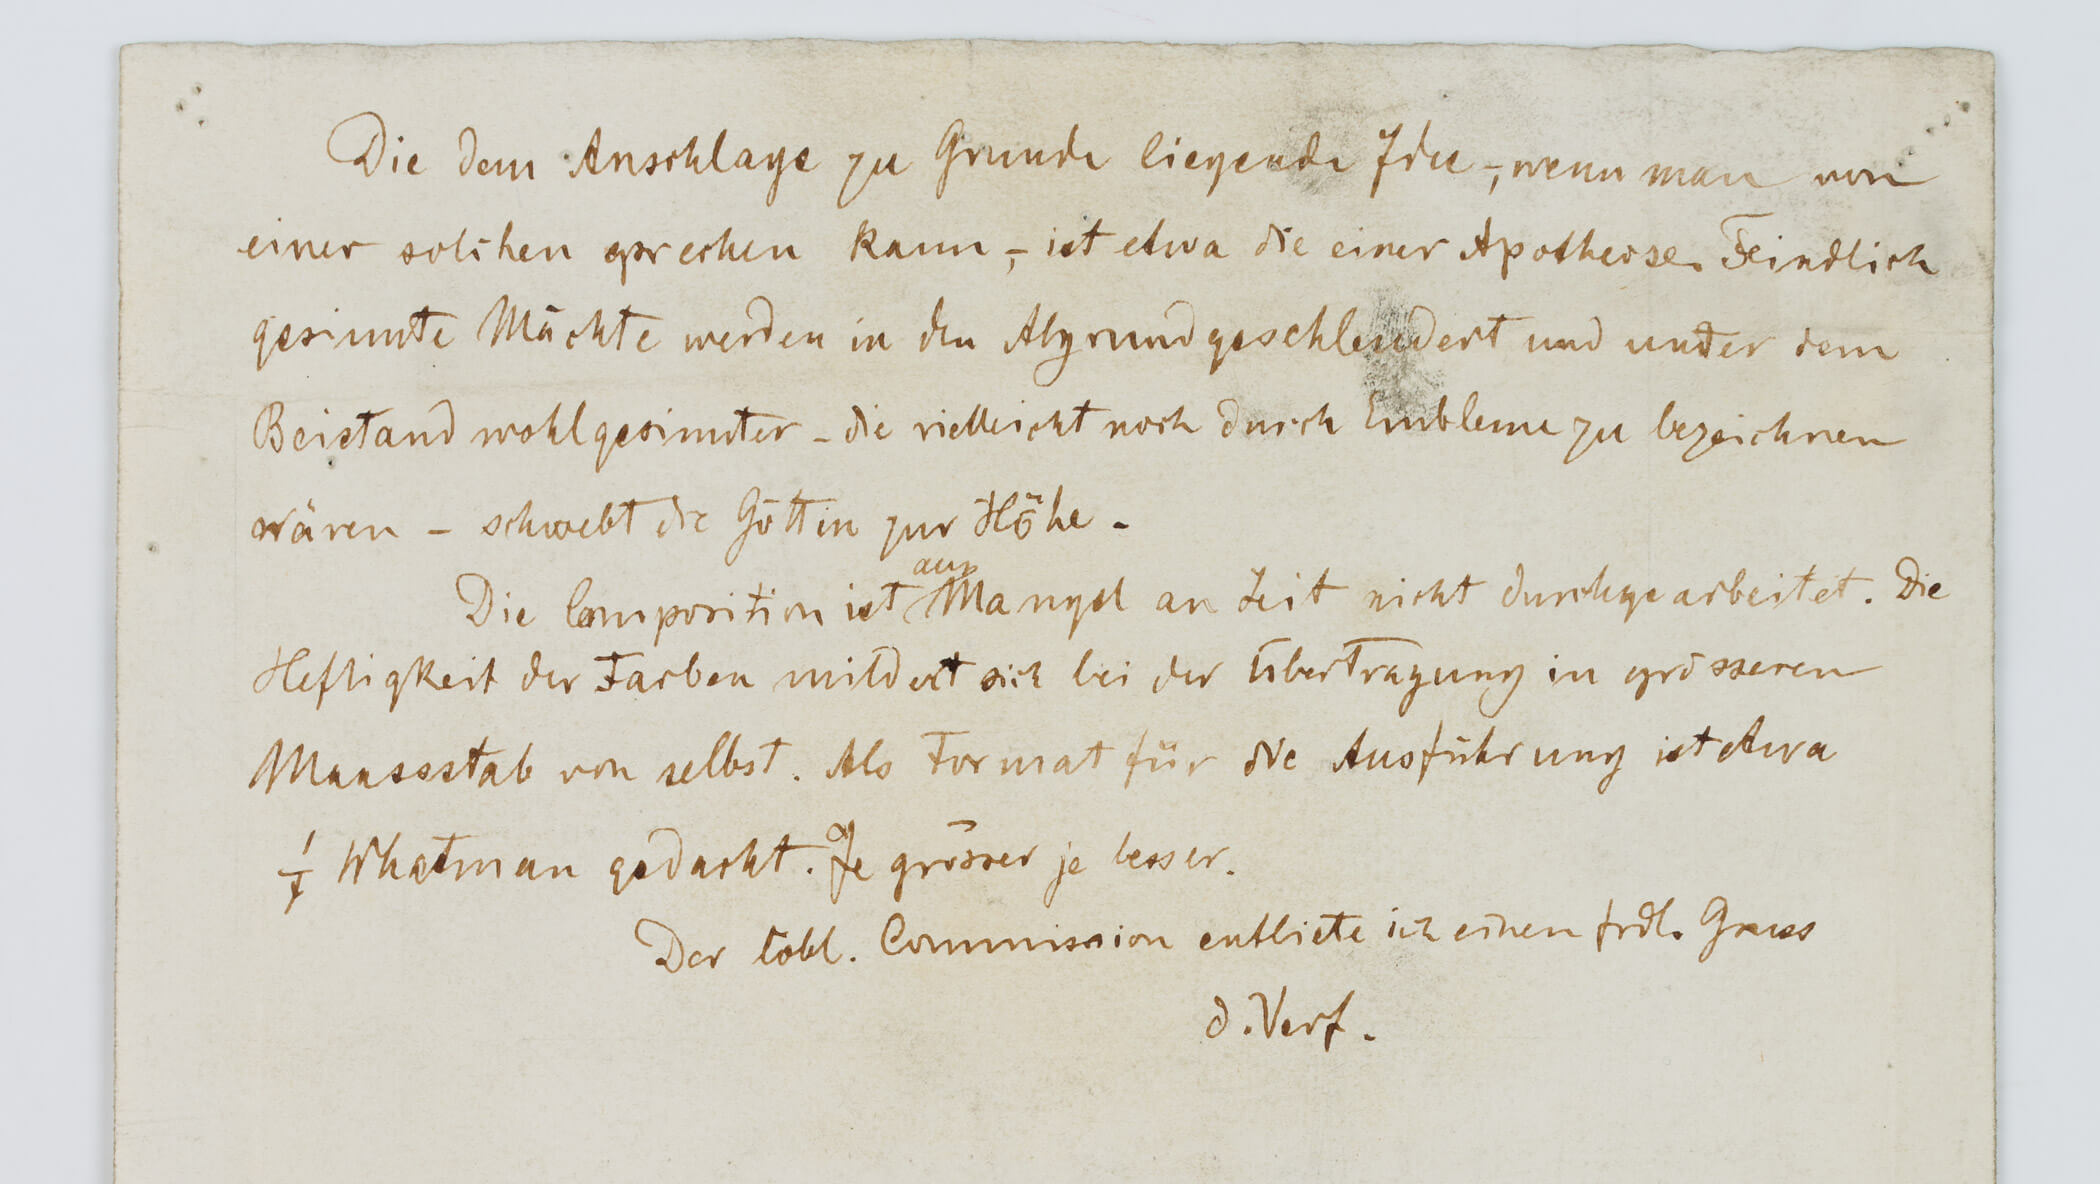 Die dem Anschlage zu Grunde liegende Idee -, wenn man von
einer solchen sprechen kann, - ist etwa die einer Apotheose. Feindlich
gesinnte Mächte werden in den Abgrund geschleudert und unter dem
Beistand wohlgesinnter - die vielleicht noch durch Embleme zu bezeichnen
wären - schwebt die Göttin zur Höhe -
aus
Die Composition ist Mangel an Zeit nicht durchgearbeitet. Die
Heftigkeit der Farben mildert sich bei der Übertragung in grösseren
Maassstab von selbst. Als Format für die Ausführung ist etwa
1/1 Whatman gedacht. Je grösser je besser.
Der löbl. Commission entbiete ich einen frdl. Gruss
d. Verf.